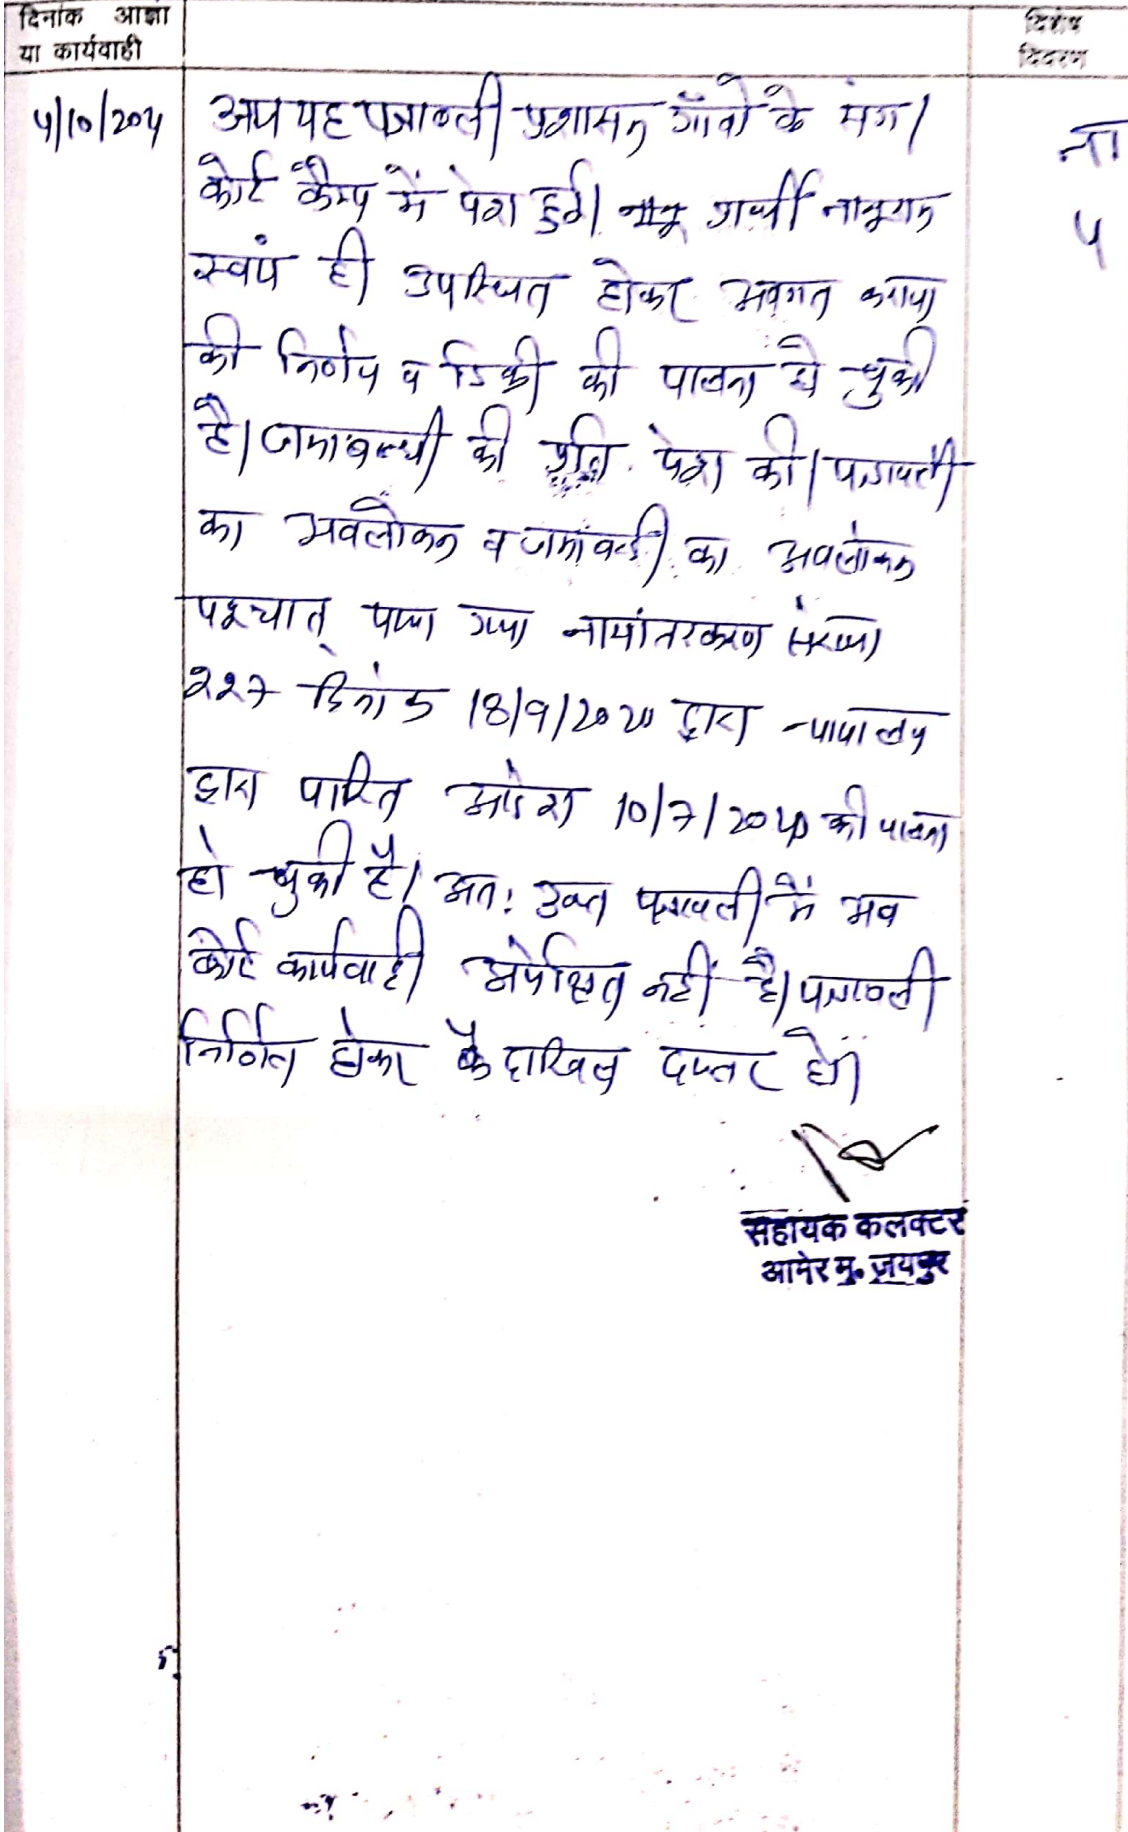 दिनांक आज्ञा
या कार्यवाही
विशेष
विवरण
अज यह पत्रावली प्रशासन गाँवो के संग
कोर्ट कैम्प में पेश हुई। प्रार्थी
स्वयं ही उपस्थित होकर अवगत कराया
की निर्णय व डिक्री की पालना हो चुकी
है। जमाबन्दी की प्रति पेश की। पत्रावली
का अवलोकन व जमाबन्दी का अवलोकन
पश्चात् पाया गया नामांतरकरण संख्या
227 दिनांक 18/9/2020 द्वारा न्यायालय
द्वारा पारित आदेश 10/7/2020 की पालना
हो चुकी है। अतः उक्त पत्रावली में अब
कोई कार्यवाही अपेक्षित नहीं है। पत्रावली
निर्णित होकर दाखिल दफ्तर हो।
सहायक कलक्टर
आमेर मु. जयपुर